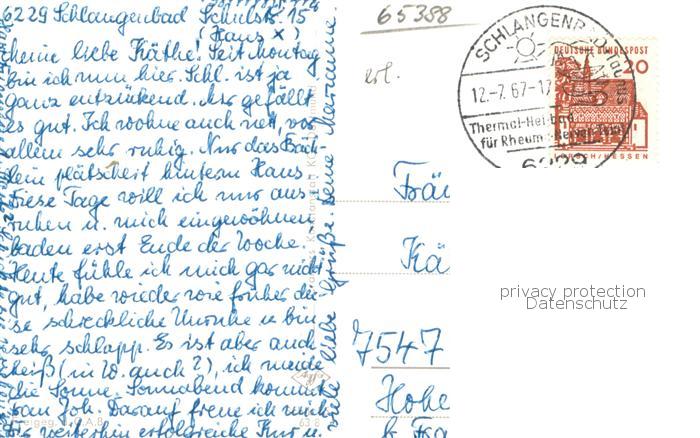 6229 Schlangenbad Schulstr. 15
(Haus X)
Meine liebe Käthe! Seit Montag
bin ich nun hier. Schl. ist ja
ganz entzückend. Mir gefällt
es gut. Ich wohne auch nett, vor
allem sehr ruhig. Nur das Bäch-
lein plätschert hinterm Haus.
Diese Tage will ich nur aus-
ruhen u. mich eingewöhnen
baden erst Ende der Woche.
Heute fühle ich mich gar nicht
gut, habe wieder wie früher die-
se schreckliche Unruhe u. bin
sehr schlapp. Es ist aber auch
heiß (in W. auch?), ich meide
die Sonne. Sonnabend kommt
Joh. Darauf freue ich mich
Dir weiterhin erfolgreiche Kur u.
viele liebe Grüße. Deine Marianne
65388
SCHLANGENBAD Taunus
12.-7.67-17
Thermal-Heilbad
für Rheuma-Nerven
6229
DEUTSCHE BUNDESPOST
20
LORSCH/HESSEN
Fräu
Kä
7547
Hohe
b. Fra
63 8
privacy protection
Datenschutz